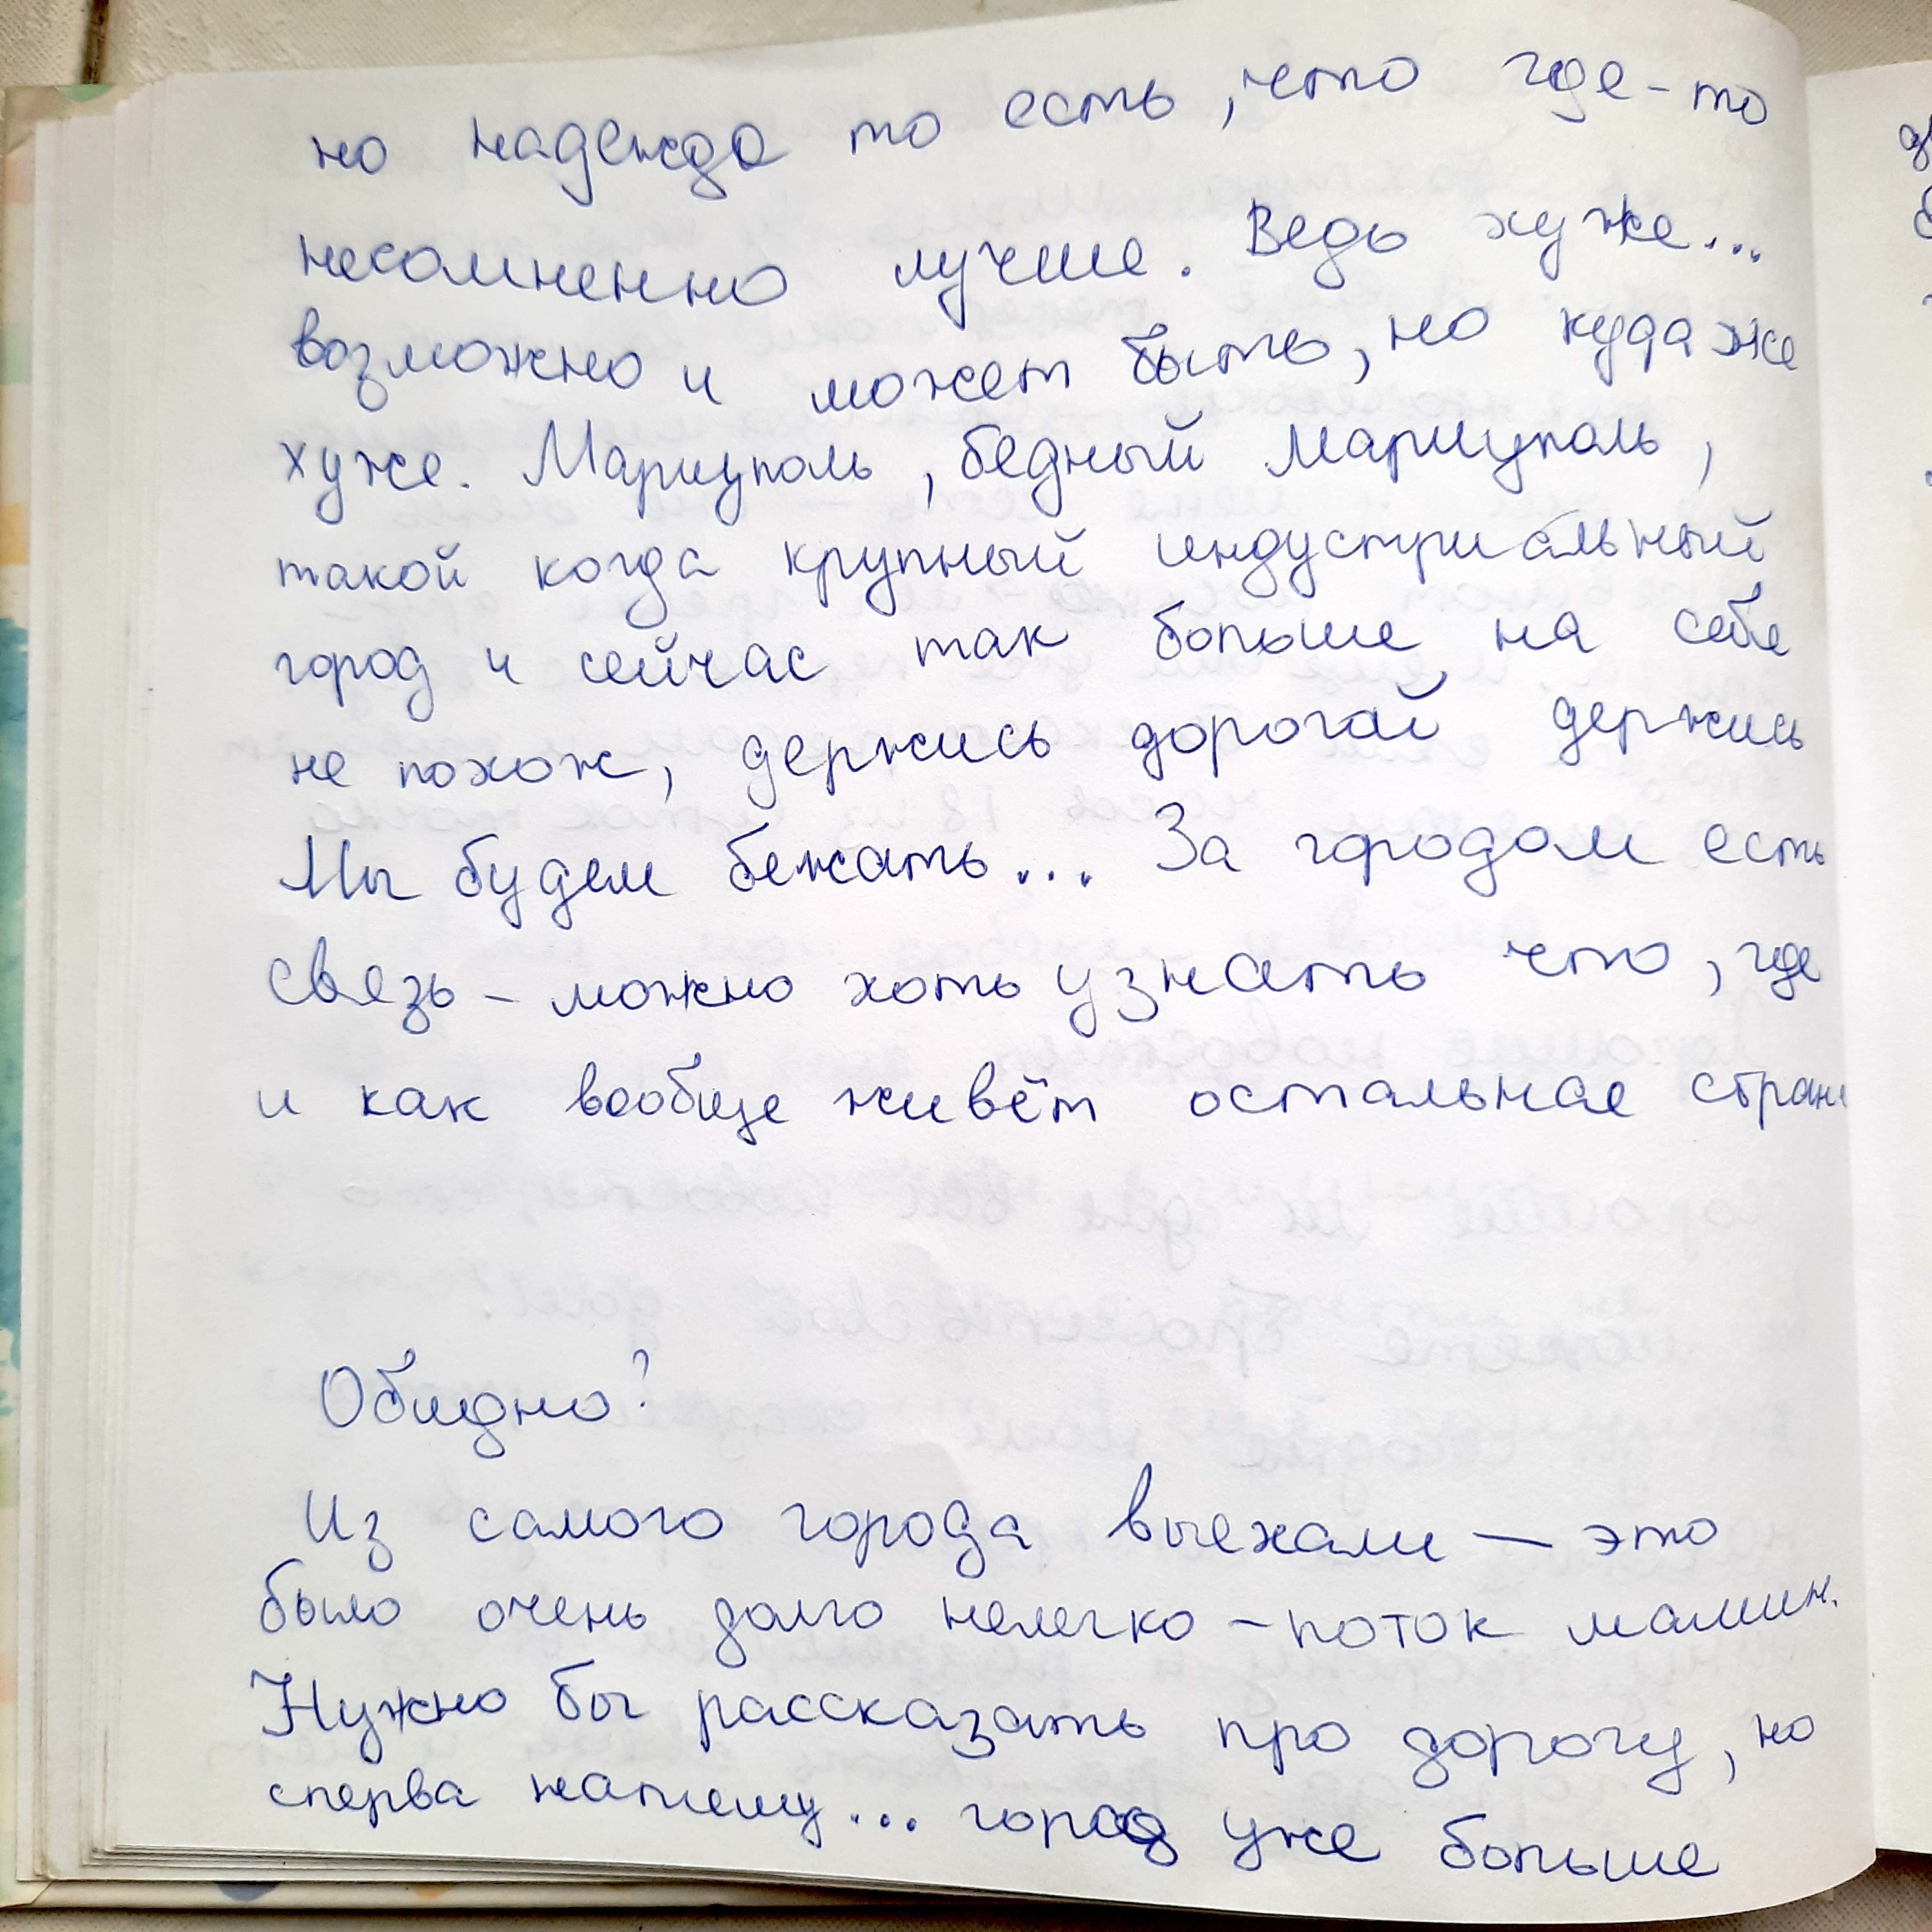 но надежда то есть, что где-то
несомненно лучше. Ведь хуже...
возможно и может быть, но куда же
хуже. Мариуполь, бедный Мариуполь,
такой когда крупный индустриальный
город и сейчас так больше на себя
не похож, держись дорогой держись
Мы будем бежать... За городом есть
связь - можно хоть узнать что, где
и как вообще живёт остальная стран
Обидно?
Из самого города выехали — это
было очень долго нелегко - поток машин.
Нужно бы рассказать про дорогу, но
сперва напишу... город уже больше